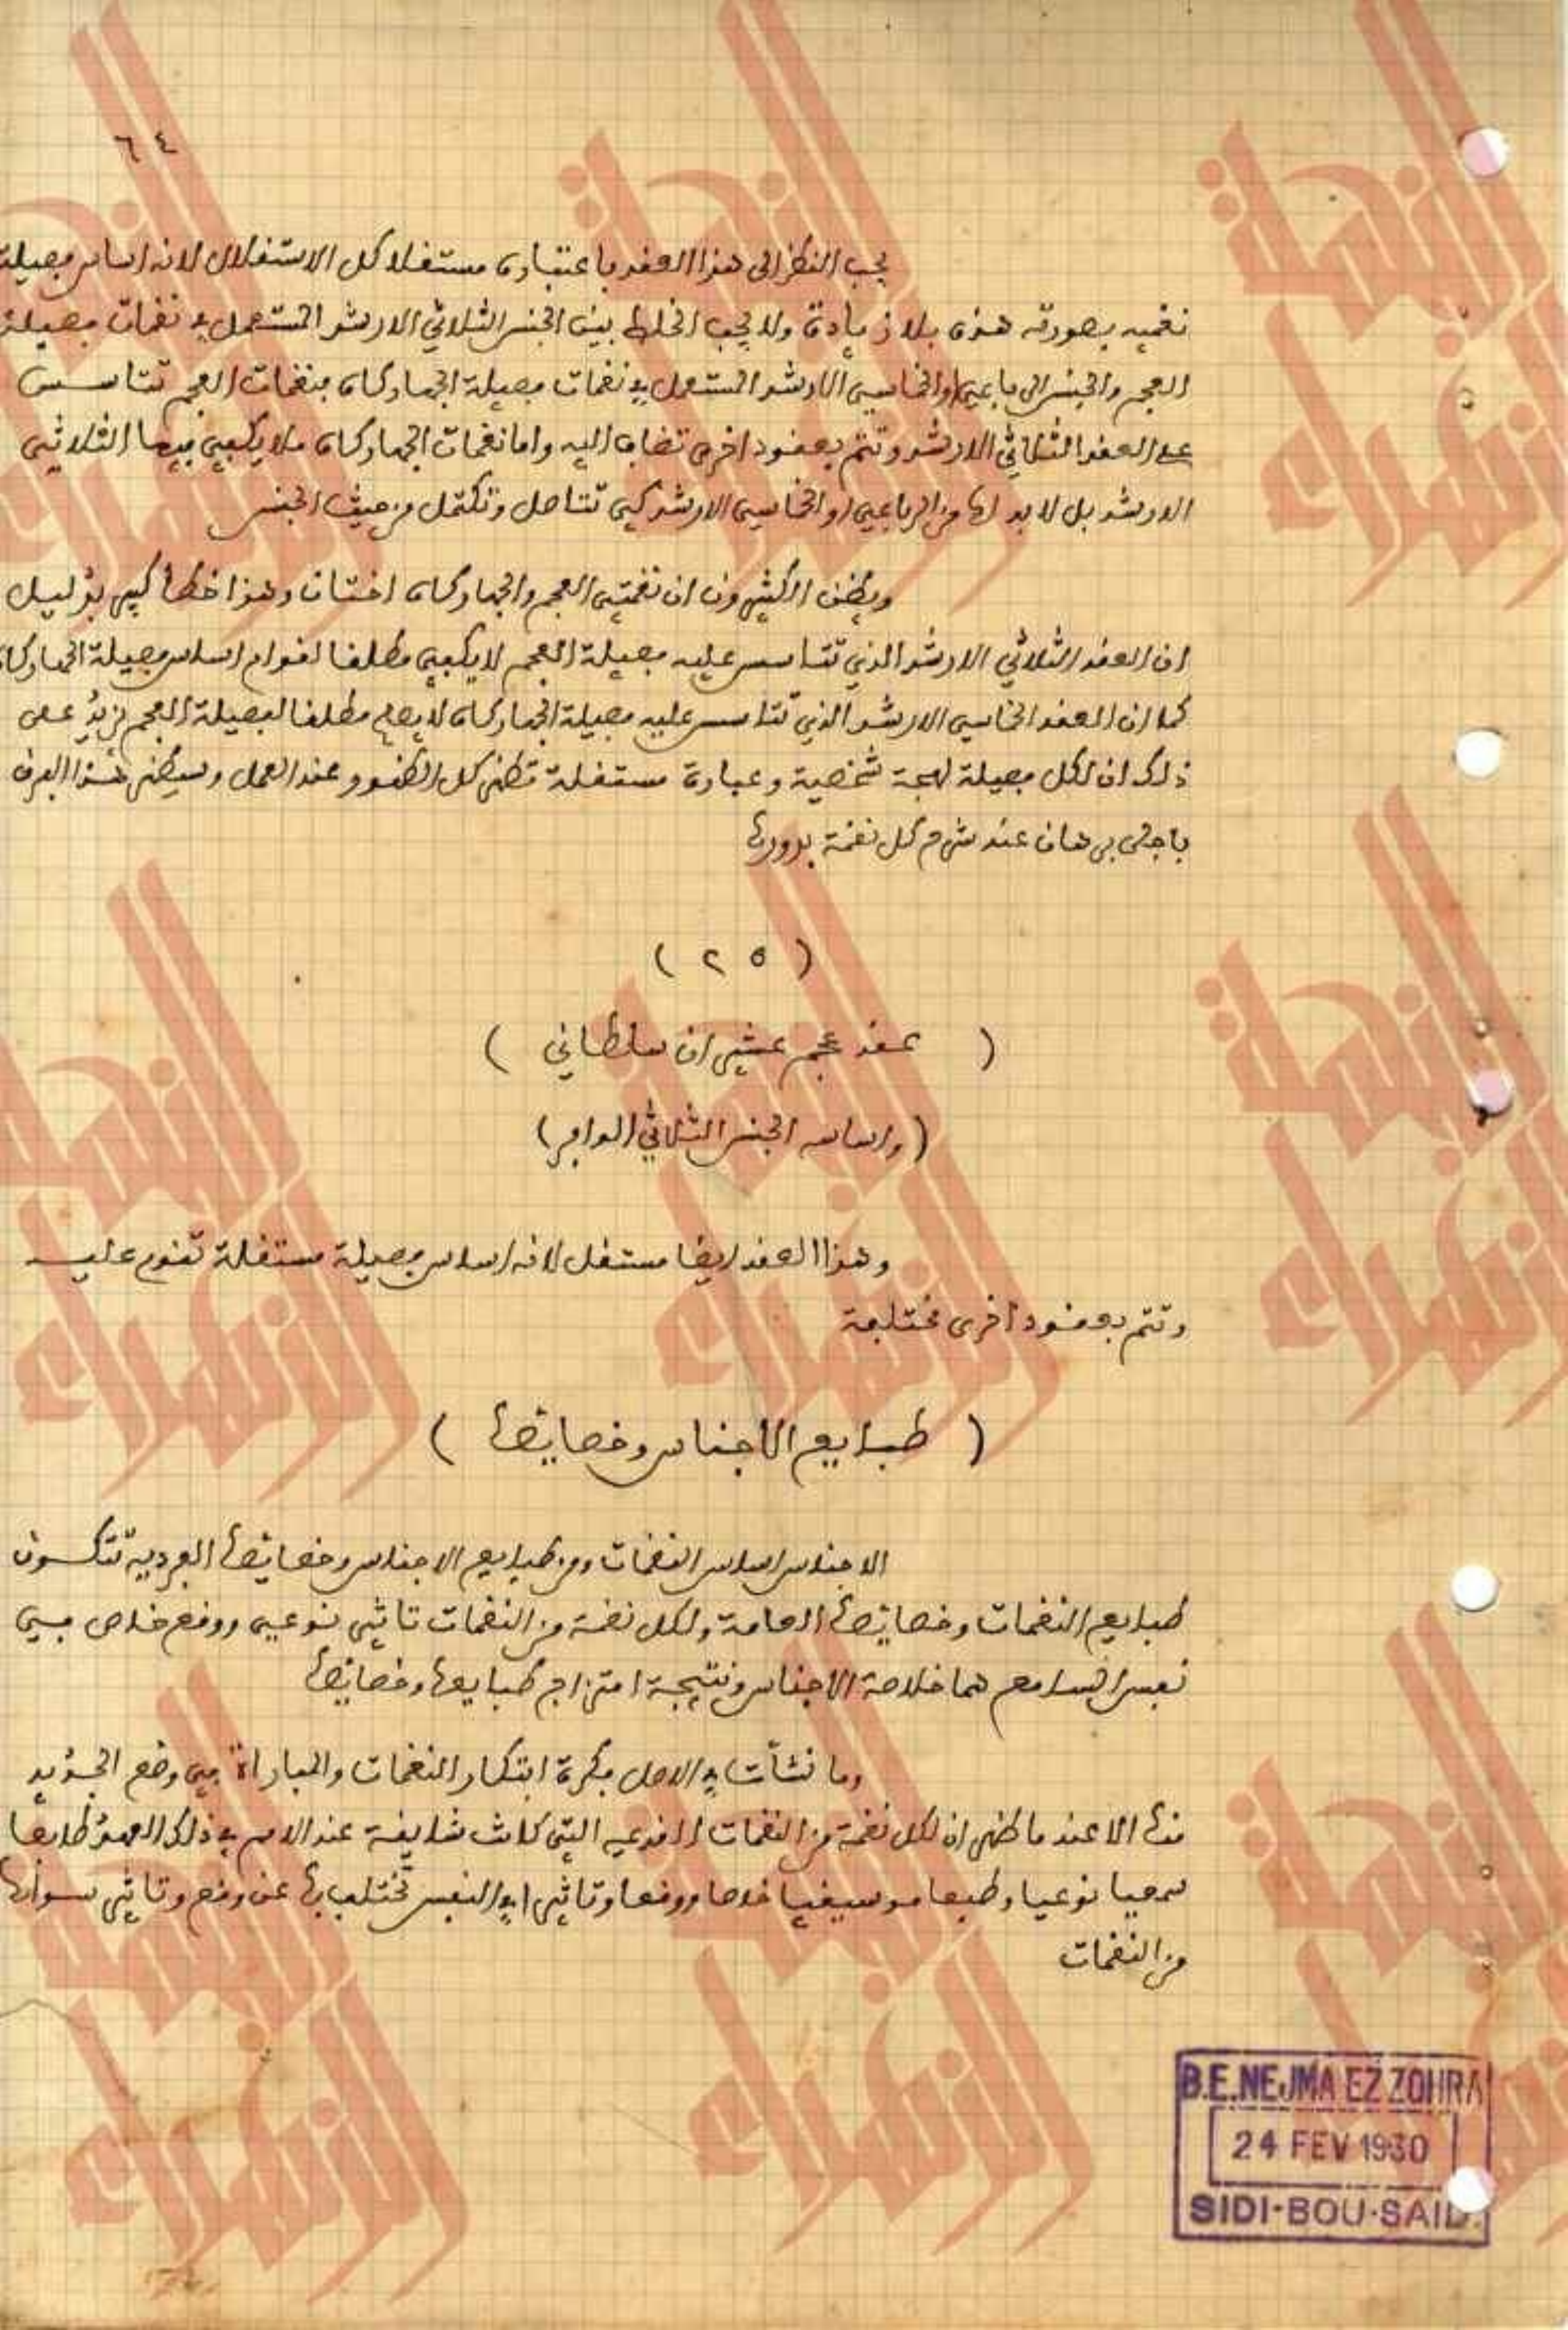 ٦٤
يجب النظر الى هذا العقد باعتباره مستقلا كل الاستقلال لانه اساس فصيلة
نغميه بصورته هذه بلا زيادة ولا يجب الخلط بين الجنس الثلاثي الارشد المستعمل في نغمات فصيلة
العجم والجنس الرباعي او الخماسي الارشد المستعمل في نغمات فصيلة الجهاركاه فنغمات العجم تتاسس
على العقد الثلاثي الارشد وتتم بعقود اخرى تضاف اليه واما نغمات الجهاركاه فلا يكفي فيها الثلاثي
الارشد بل لا بد لها من الرباعي او الخماسي الارشد كي تتاصل وتكتمل من حيث الجنس
ويظن الكثيرون ان نغمتي العجم والجهاركاه اختان وهذا خطأ كبير بدليل
ان العقد الثلاثي الارشد الذي تتاسس عليه فصيلة العجم لا يكفي مطلقا لقوام اساس فصيلة الجهاركاه
كما ان العقد الخماسي الارشد الذي تتاسس عليه فصيلة الجهاركاه لا يصلح مطلقا لفصيلة العجم زِدْ على
ذلك ان لكل فصيلة لهجة شخصية وعبارة مستقلة تظهر كل الظهور عند العمل وسيظهر هذا الفرق
باجلى برهان عند شرح كل نغمة بدورها
( ٢٥ )
( عقد عجم عشيران سلطاني )
(واساسه الجنس الثلاثي الوافر)
وهذا العقد ايضا مستقل لانه اساس فصيلة مستقلة تقوم عليه
وتتم بعقود اخرى مختلفة
( طبايع الاجناس وخصايصها )
الاجناس اساس النغمات ومن طبايع الاجناس وخصايصها الفردية تتكون
طبايع النغمات وخصايصها العامة ولكل نغمة من النغمات تاثير نوعي ووقع خاص في
نفس السامع هما خلاصة الاجناس ونتيجة امتزاج طبايعها وخصايصها
وما نشأت في الاصل فكرة ابتكار النغمات والمباراة في وضع الجديد
منها الا عند ما ظهر ان لكل نغمة من النغمات القديمه التي كانت شايعة عند الامم في ذلك العهد طابعا
سمعيا نوعيا وطبعا موسيقيا خاصا ووقعا وتاثيرا في النفس تختلف بها عن وقع وتاثير سواها
من النغمات
B.E.NEJMA EZ ZOHRA
24 FEV 1930
SIDI-BOU-SAID
النجمة الزهراء